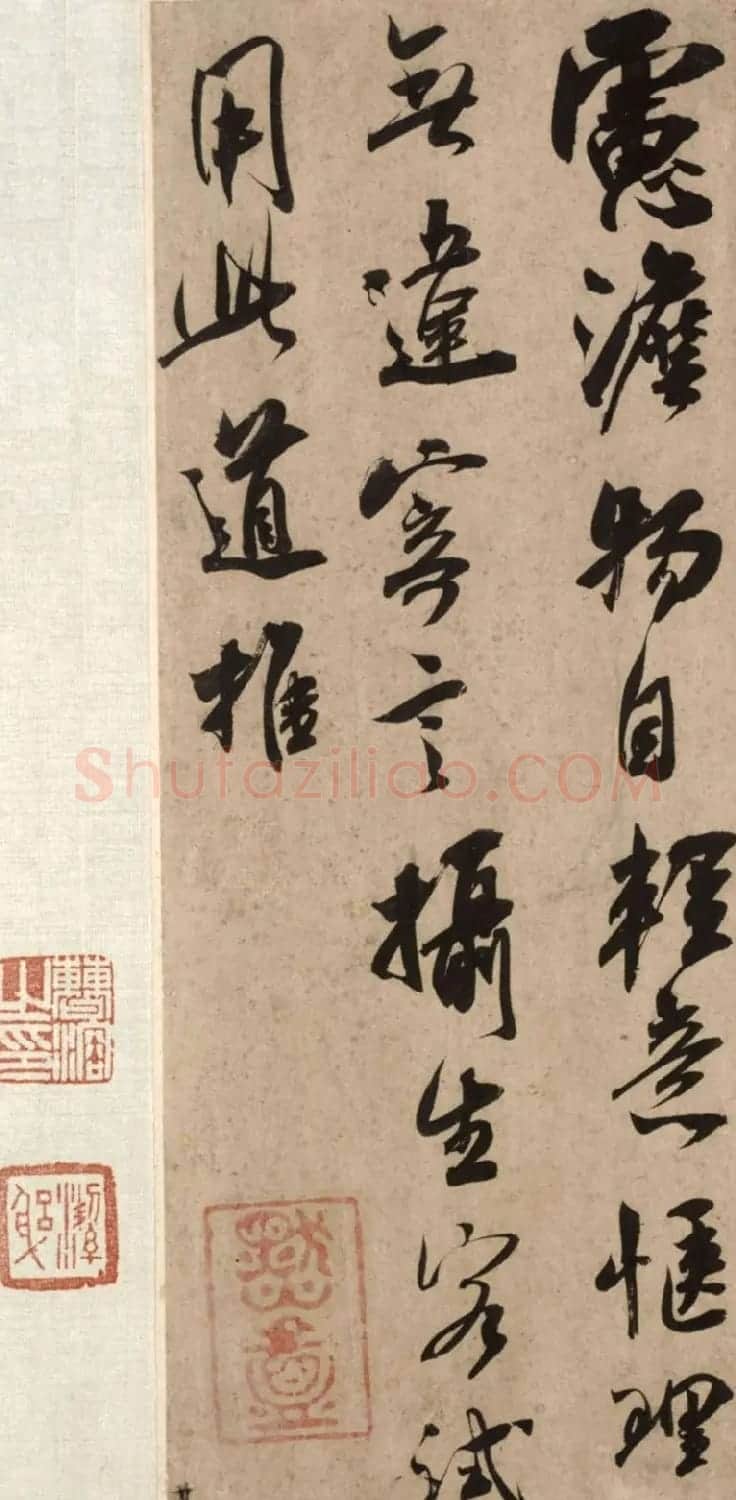 慮澹物自輕意愜理
無違寄言攝生客試
用此道推
Shufaziliao.COM